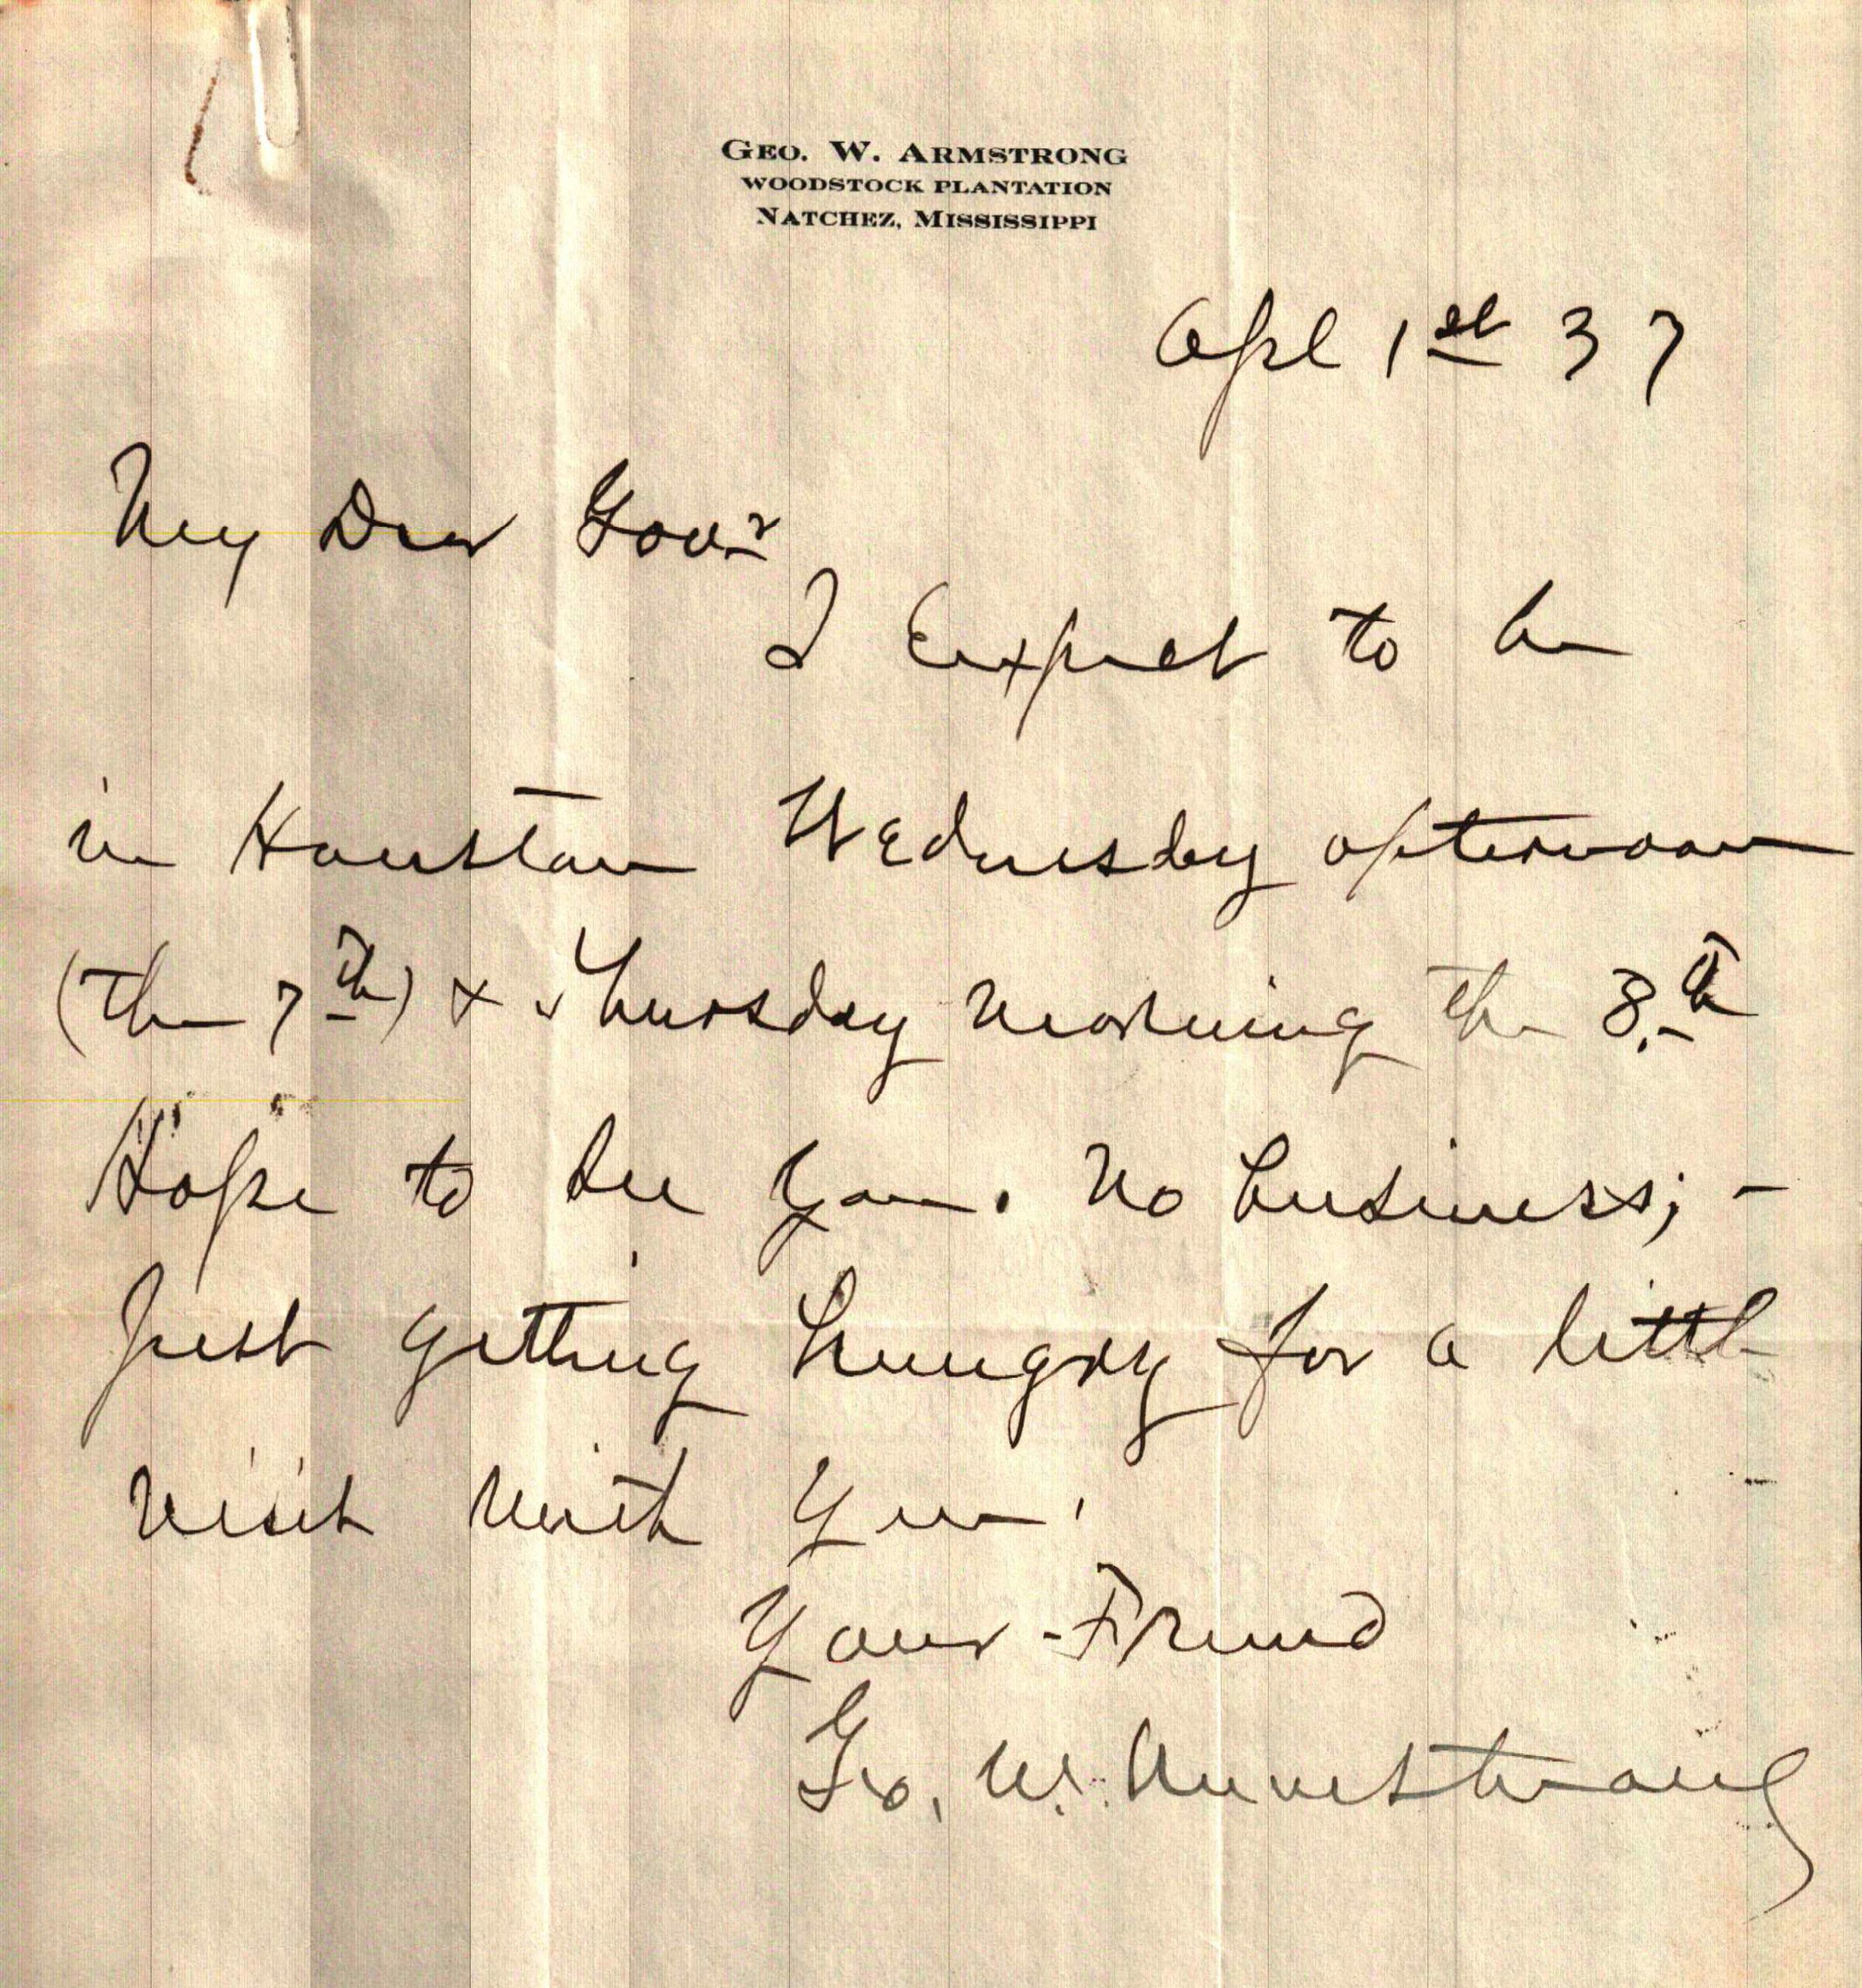 GEO. W. ARMSTRONG
WOODSTOCK PLANTATION
NATCHEZ, MISSISSIPPI
Apl 1st 37
My Dear Govr
I Expect to be
in Houston Wednesday afternoon
(the 7th) & Thursday morning the 8.th
Hope to see you. No business; -
Just getting hungry for a little
visit with you.
Your Friend
Geo. W. Armstrong